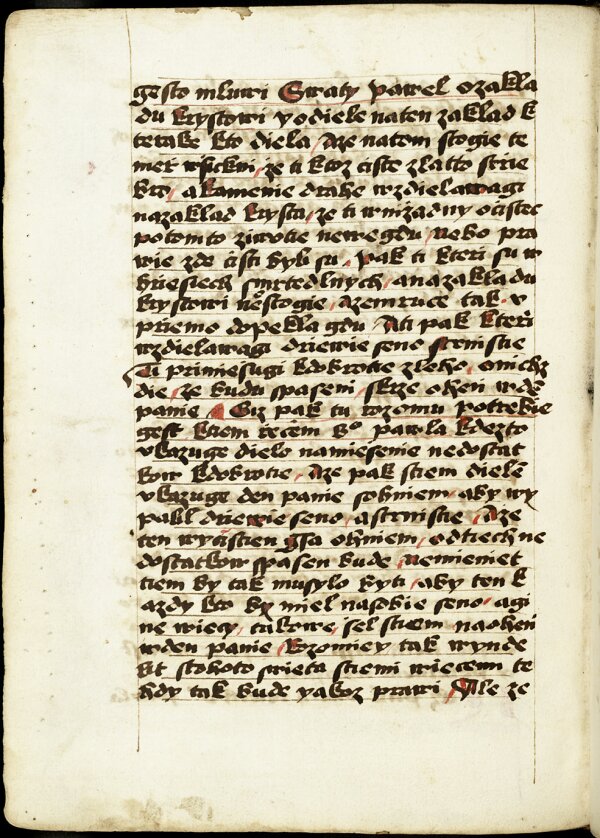 gesto mluwi Swaty pawel o zakla
du krystowi y o diele na ten zaklad k
teräke kto diela / Aze na tom stogie te
mer wsickni / ze ti ktoz ciste zlatto strie
bro / a kamenie drahe wzdielawagi
nazaklad krysta / ze ti w nizadny ocistec
potomto ziwotie newegdu / nebo pra
wie zde cisti byli su / pak ti kteri su w
hriesiech smrtedlnych / a nazakladu
krystowi nestogie / a zemruce tak w
priemo do pekla gdu / A ti pak kteri
wzdielawagi drziewie seno strnistie
Ti primiesugi k dobrotie zleho / o nichz
die / ze budu spaseni skrze ohen w den
panie / Giz pak tu rozomu potrebie
gest kniem rečem s° pawla kdezto
vkazuge dielo namiesenie nedostat
kow k dobrotie / Aze pak stiem dielē
vkazuge den panie sohniem / aby wy
palil drziewie seno / a strnistie / Aze
ten wycistien gsa ohniem / od tiech ne
dostatkow spasen bude / nemieniet
tiem by tak musylo byti / aby ten k
azdy kto by miel na sobie seno / a gi
ne wiecy / takowe / sel stiem na ohen
w den panie / Rozomiey tak wynde
lit stohoto swieta stiemi wiecemi te
hdy tak bude yakoz prawi / Ale ze